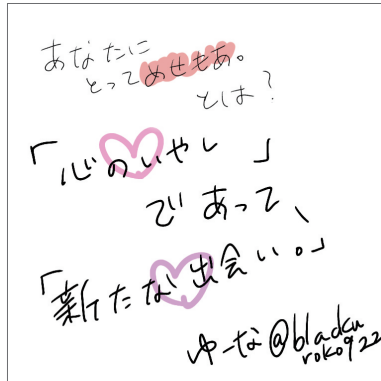 あなたに
とってめせもあ。
とは？
「心のいやし」
であって、
「新たな出会い。」
ゆーな@blacku
roko922